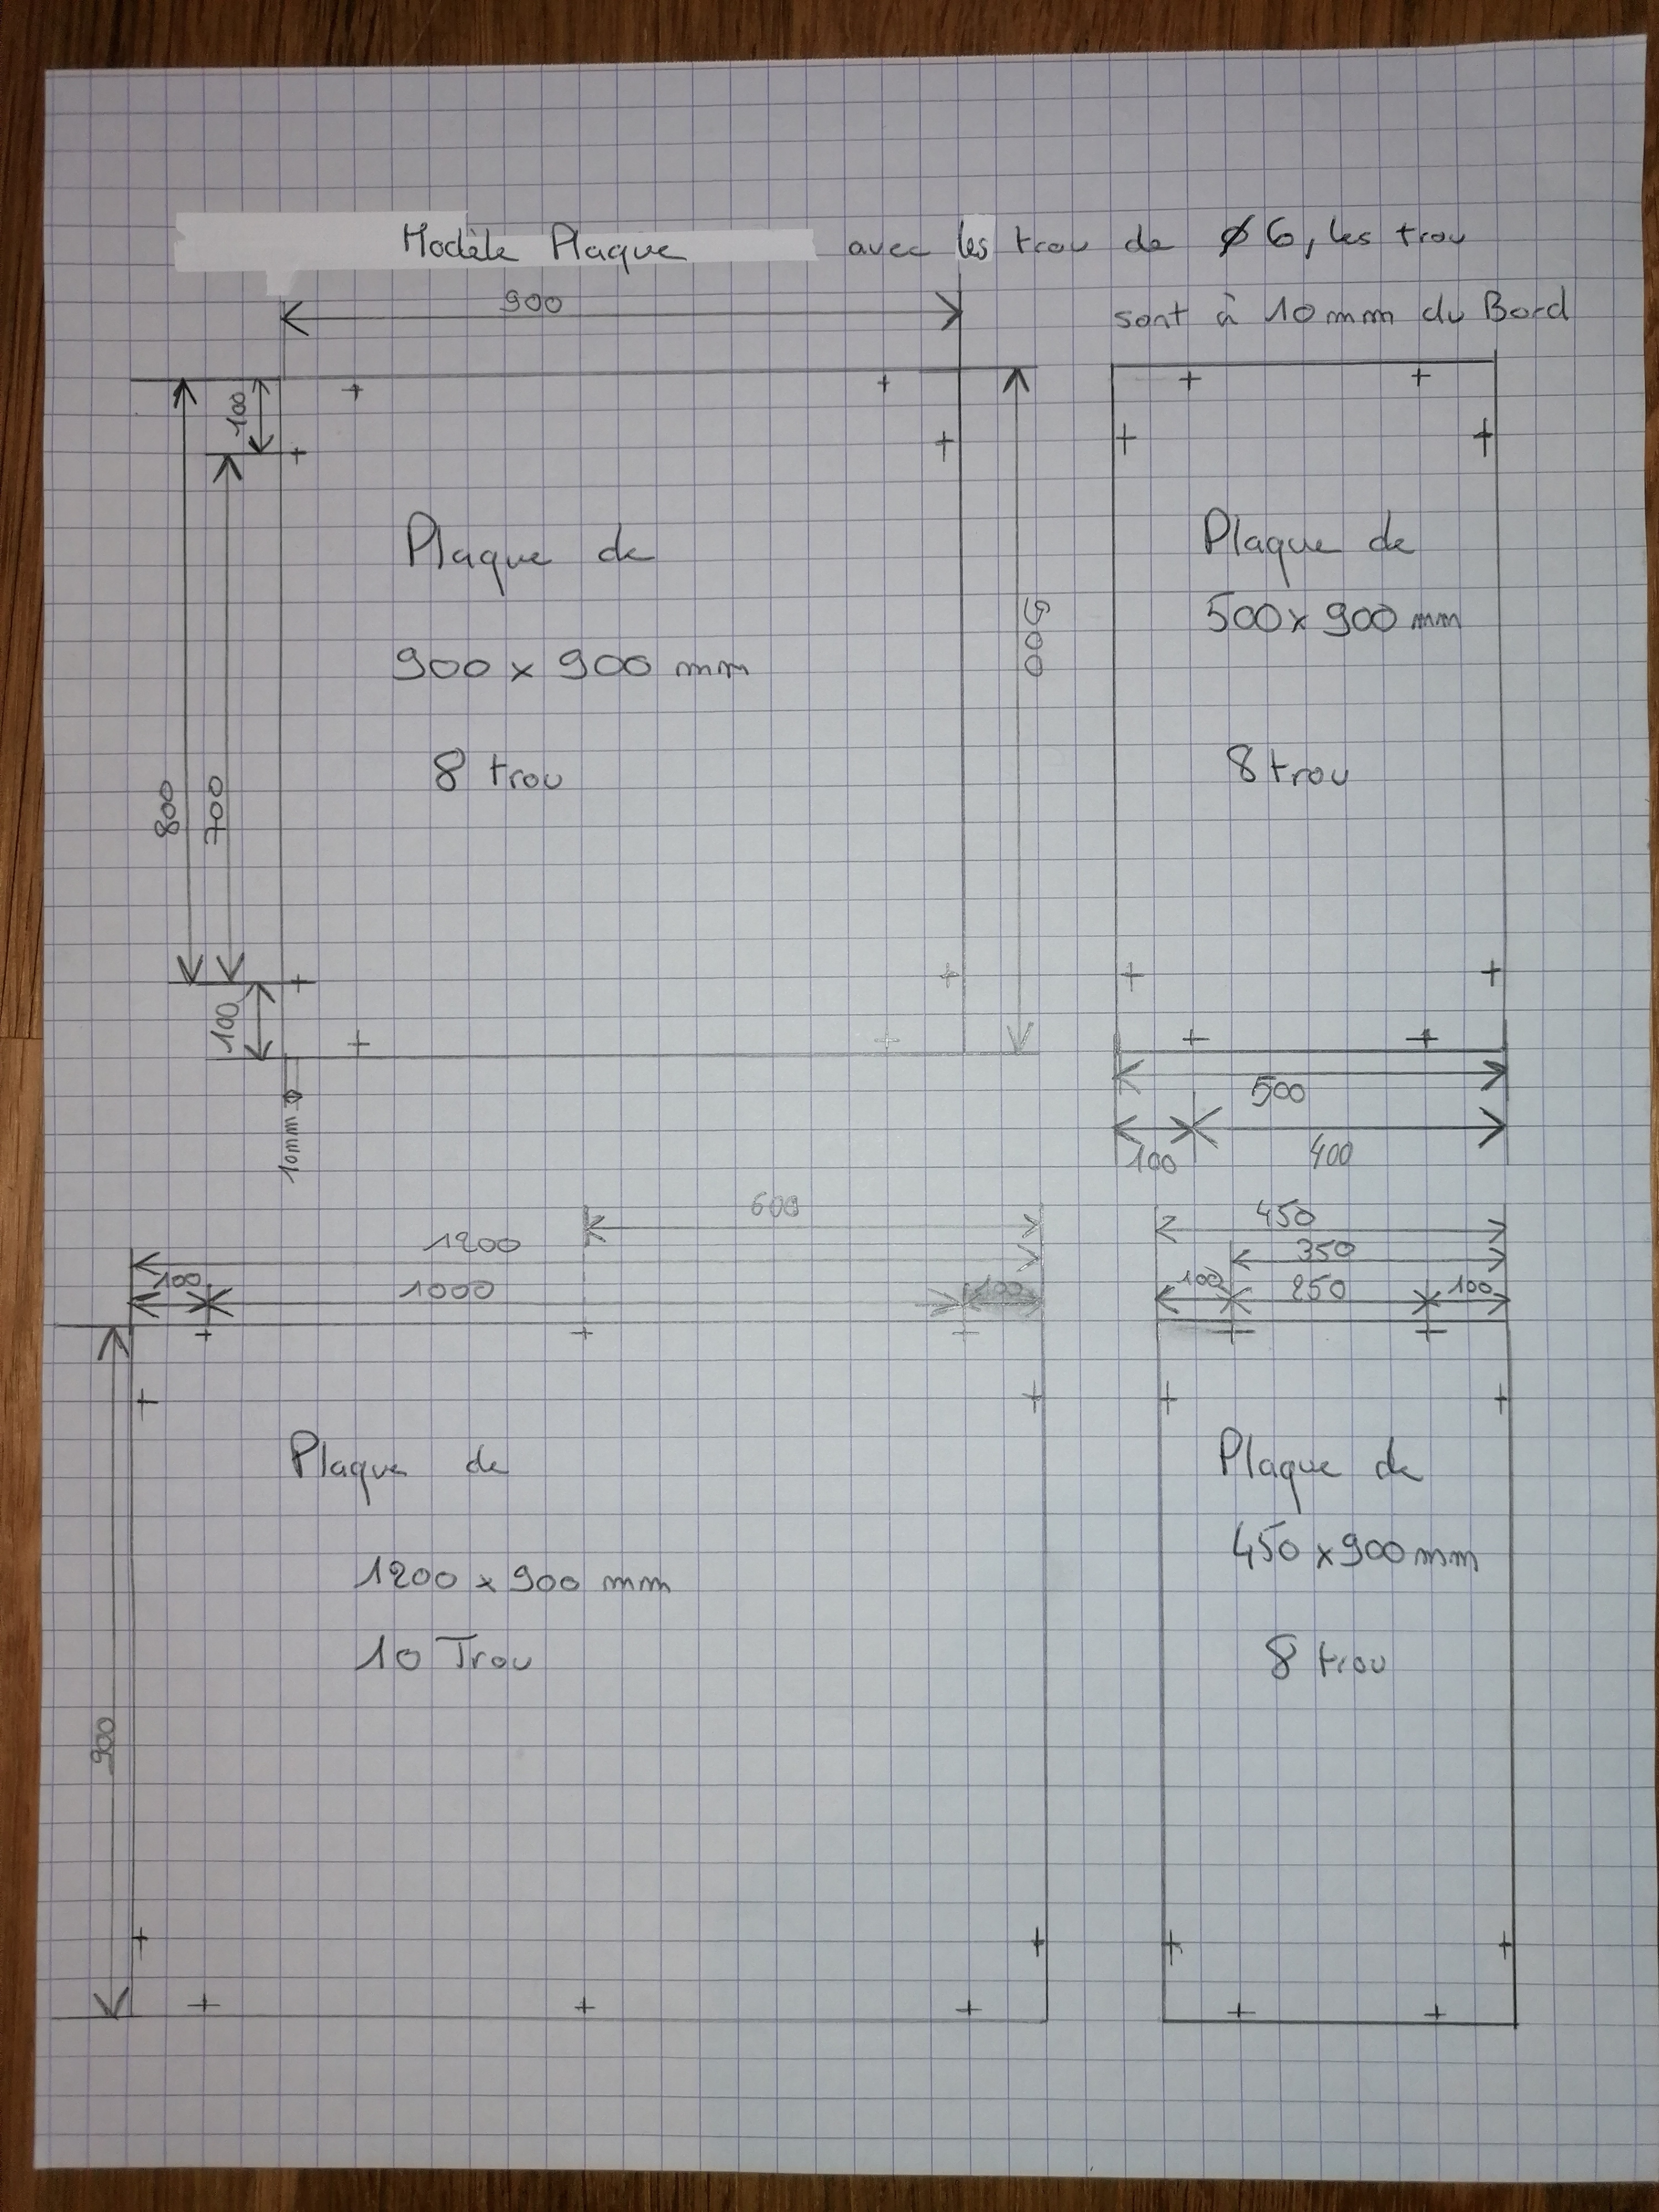 Modèle Plaque avec les trou de Ø6, les trou
sont à 10mm du Bord
900
100
800
700
100
10mm
900
Plaque de
900 x 900 mm
8 trou
Plaque de
500x 900 mm
8 trou
500
100 400
600
1200
100 1000 100
900
Plaque de
1200 x 900 mm
10 Trou
450
350
100 250 100
Plaque de
450 x 900 mm
8 trou